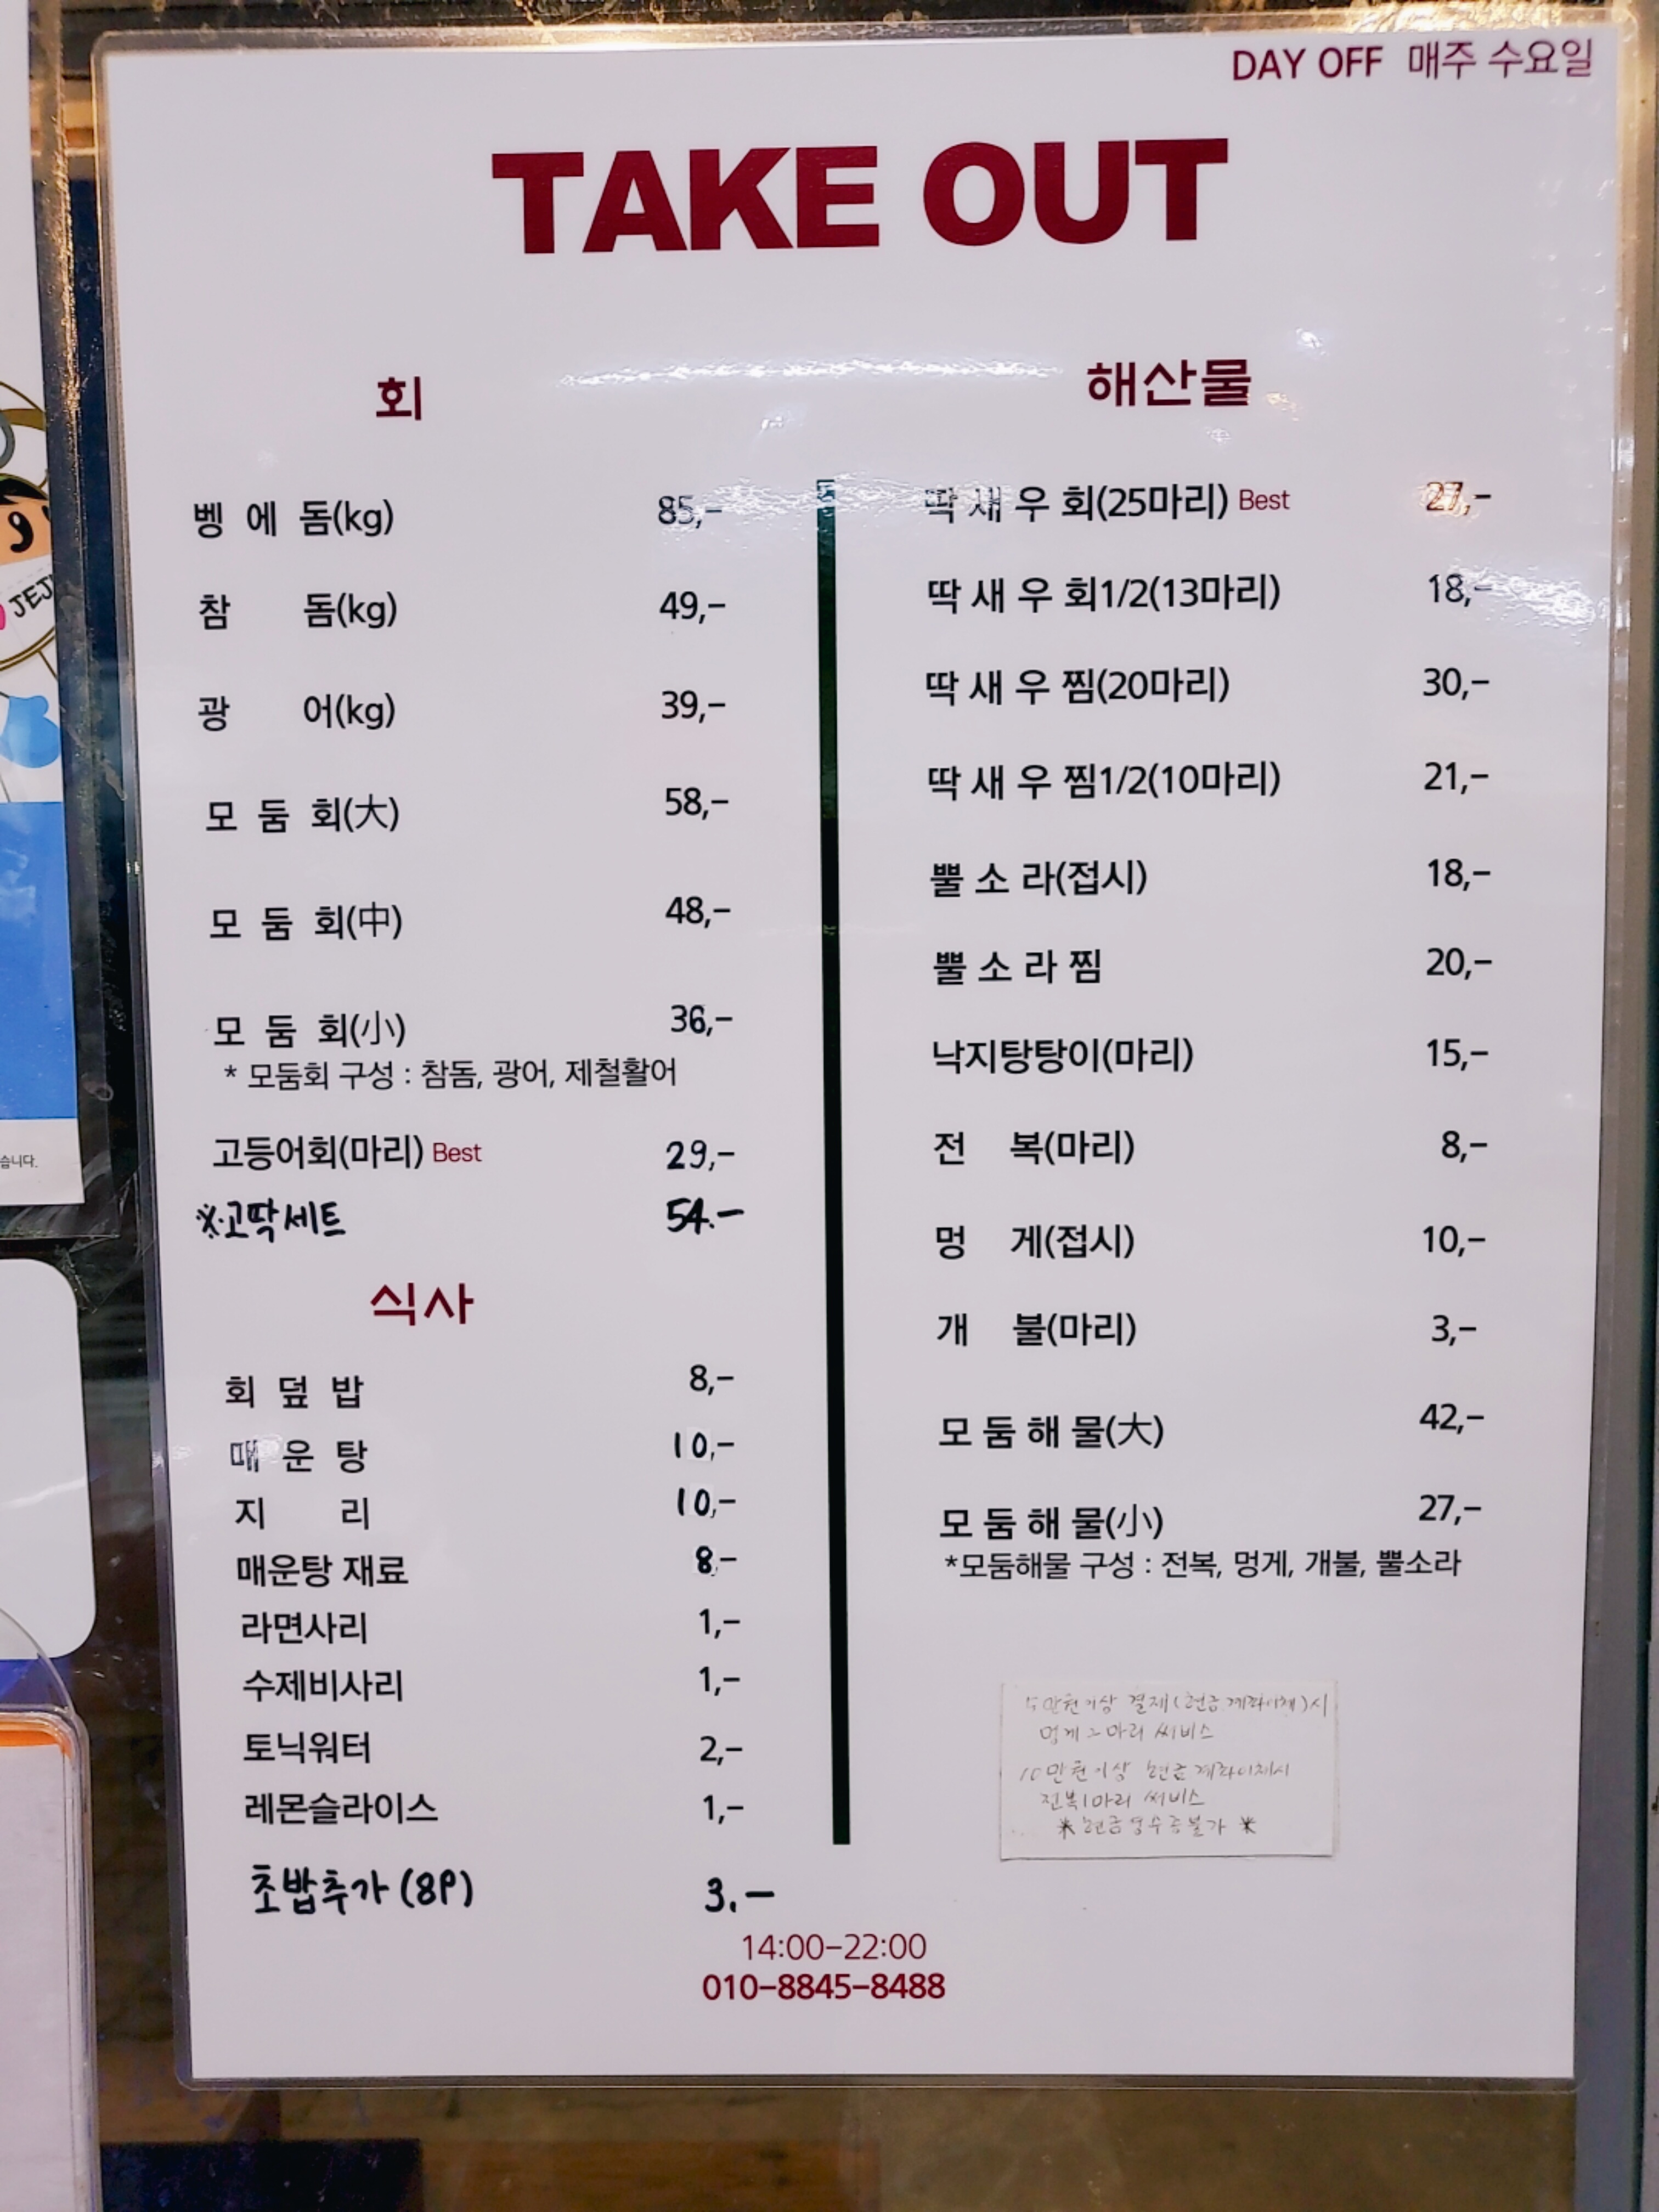 DAY OFF 매주 수요일
TAKE OUT
회
벵 에 돔(kg) 85,-
참 돔(kg) 49,-
광 어(kg) 39,-
모 둠 회(大) 58,-
모 둠 회(中) 48,-
모 둠 회(小) 36,-
* 모둠회 구성 : 참돔, 광어, 제철활어
고등어회(마리) Best 29,-
※고딱세트 54.-
식사
회 덮 밥 8,-
매 운 탕 10,-
지 리 10,-
매운탕 재료 8,-
라면사리 1,-
수제비사리 1,-
토닉워터 2,-
레몬슬라이스 1,-
초밥추가 (8P) 3.-
해산물
딱 새 우 회(25마리) Best 27,-
딱 새 우 회1/2(13마리) 18,-
딱 새 우 찜(20마리) 30,-
딱 새 우 찜1/2(10마리) 21,-
뿔 소 라(접시) 18,-
뿔 소 라 찜 20,-
낙지탕탕이(마리) 15,-
전 복(마리) 8,-
멍 게(접시) 10,-
개 불(마리) 3,-
모 둠 해 물(大) 42,-
모 둠 해 물(小) 27,-
*모둠해물 구성 : 전복, 멍게, 개불, 뿔소라
5만원이상 결제(현금 계좌이체)시
멍게 2마리 써비스
10만원이상 현금 계좌이체시
전복1마리 써비스
* 현금영수증불가 *
14:00-22:00
010-8845-8488
JEJU
습니다.